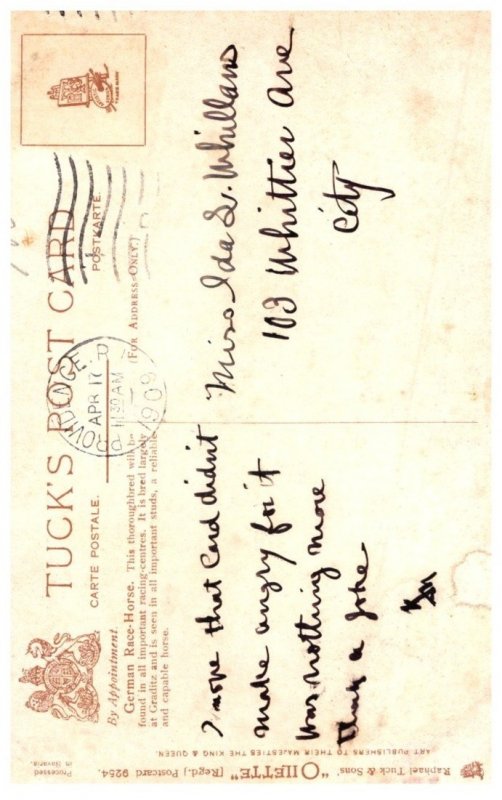 TUCK'S POST CARD
CARTE POSTALE.
POSTKARTE.
(FOR ADDRESS ONLY.)
By Appointment.
German Race-Horse. This thoroughbred will be
found in all important racing-centres. It is bred largely
at Graditz and is seen in all important studs, a reliable
and capable horse.
PROVIDENCE, R.
APR 17
11 30 AM
1909
I hope that Card didn't
make angry for it
was nothing more
than a joke
Miss Ida L. Whillans
103 Whittier Ave
City
Raphael Tuck & Sons' "OILETTE" [Regd.] Postcard 9254.
ART PUBLISHERS TO THEIR MAJESTIES THE KING & QUEEN.
Processed
in Bavaria.
TRADE MARK